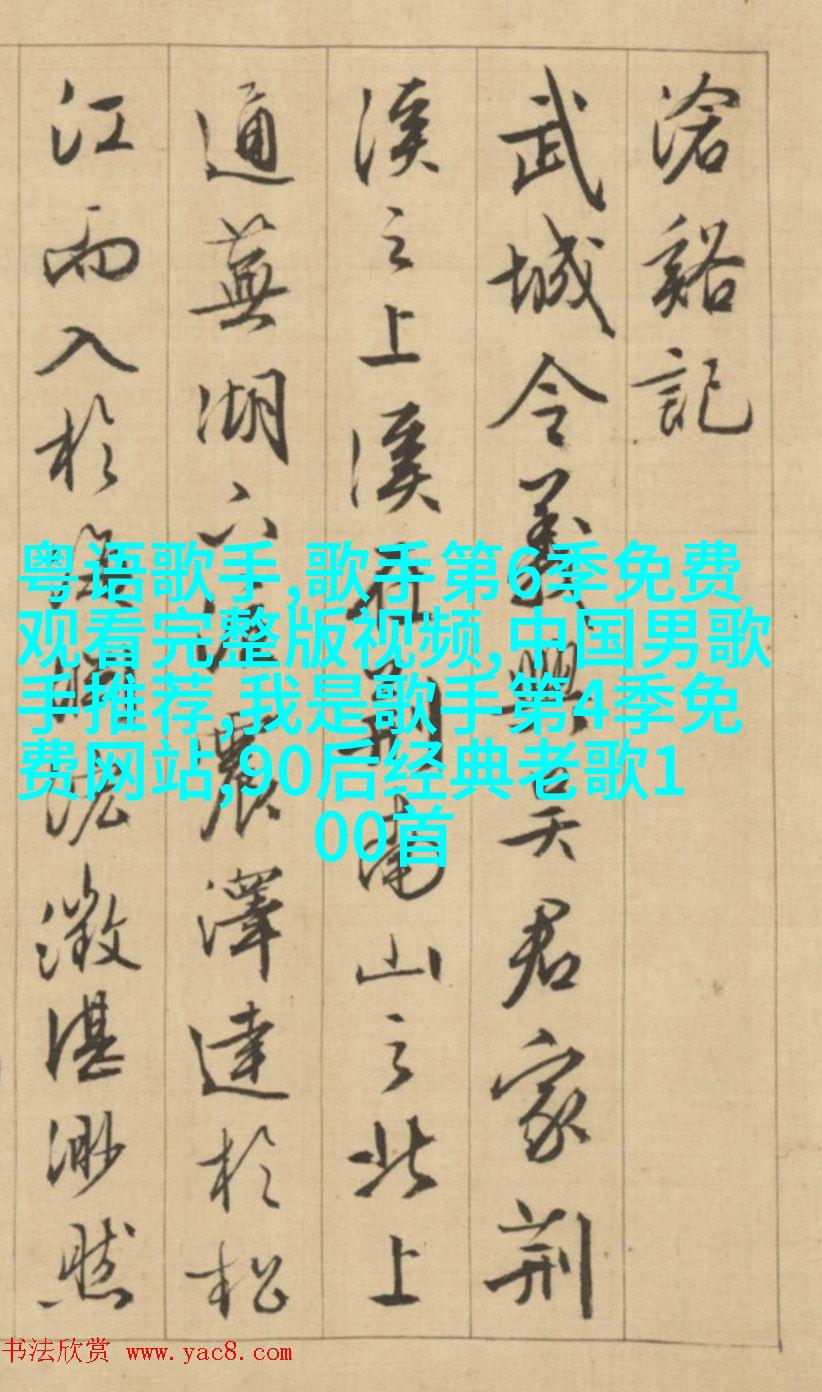 滄谿記
武城令義興吳君家荊
溪之上溪在荊南山之北上
通蕪湖 震澤達於松
江而入於 泓澂湛渺然
粤语歌手,歌手第6季免费
观看完整版视频,中国男歌
手推荐,我是歌手第4季免
费网站,90后经典老歌1
00首
书法欣赏 www.yac8.com